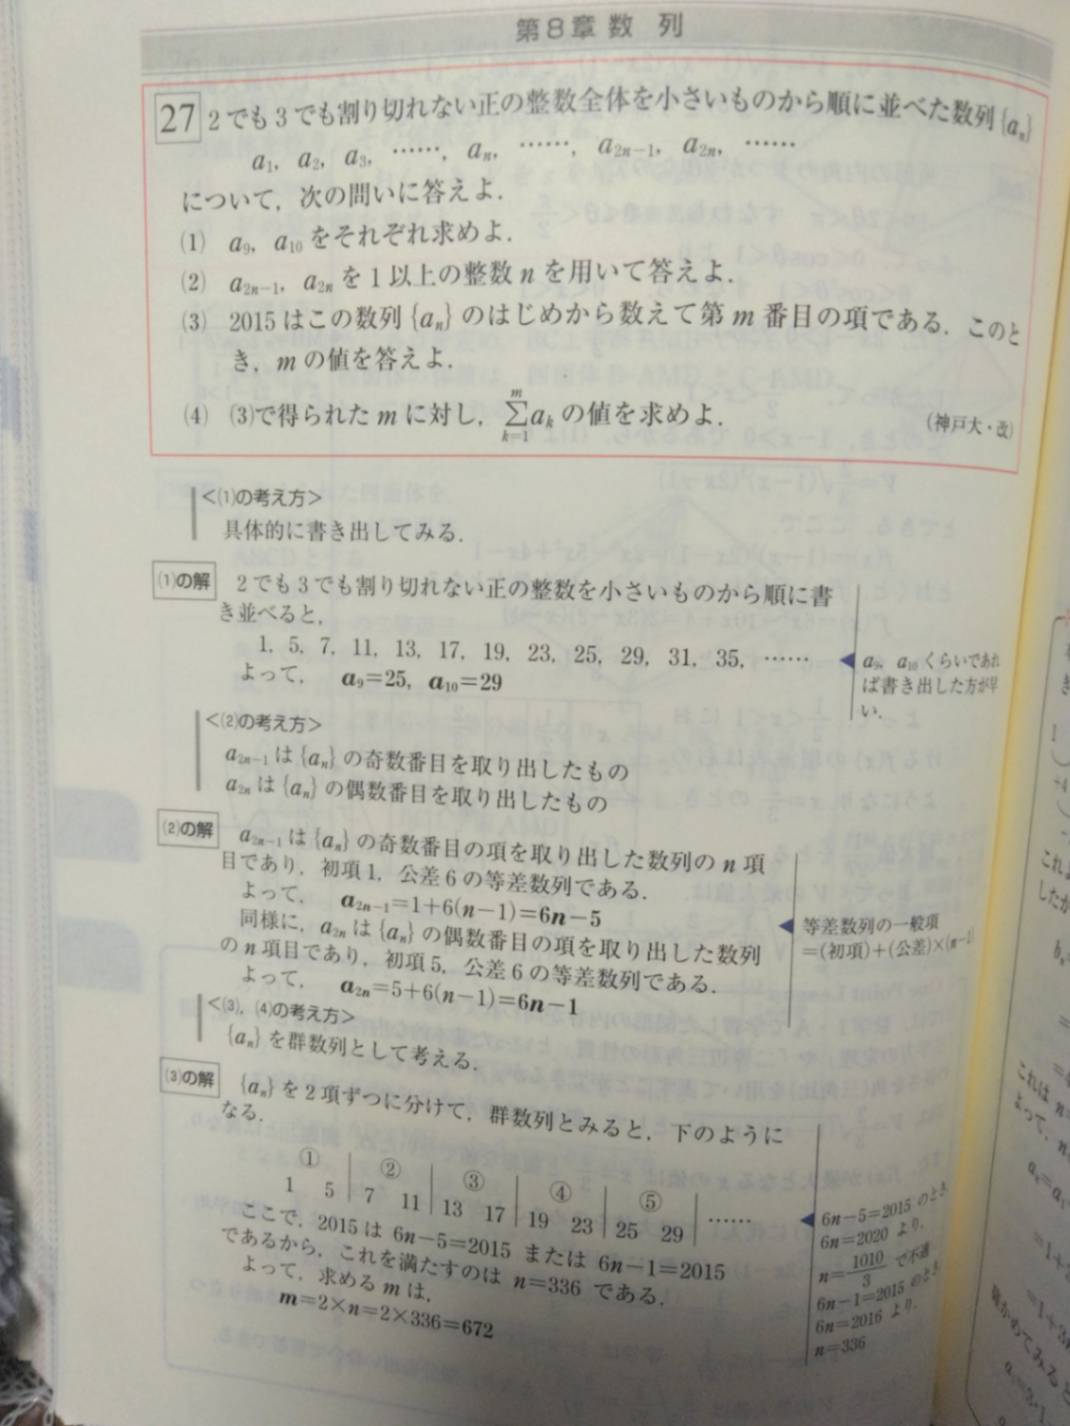 第8章 数 列
27 2でも3でも割り切れない正の整数全体を小さいものから順に並べた数列{aₙ}
a₁, a₂, a₃, ……, aₙ, ……, a₂ₙ₋₁, a₂ₙ, ……
について,次の問いに答えよ.
(1) a₉, a₁₀ をそれぞれ求めよ.
(2) a₂ₙ₋₁, a₂ₙ を1以上の整数 n を用いて答えよ.
(3) 2015はこの数列{aₙ}のはじめから数えて第 m 番目の項である.このと
き,m の値を答えよ.
(4) (3)で得られた m に対し,∑ₖ₌₁ᵐ aₖ の値を求めよ.
(神戸大・改)
<(1)の考え方>
具体的に書き出してみる.
(1)の解 2でも3でも割り切れない正の整数を小さいものから順に書
き並べると,
1, 5, 7, 11, 13, 17, 19, 23, 25, 29, 31, 35, ……
よって, a₉=25, a₁₀=29
◀ a₉, a₁₀ くらいであれ
ば書き出した方が早
い.
<(2)の考え方>
a₂ₙ₋₁ は{aₙ}の奇数番目を取り出したもの
a₂ₙ は{aₙ}の偶数番目を取り出したもの
(2)の解 a₂ₙ₋₁ は{aₙ}の奇数番目の項を取り出した数列の n 項
目であり,初項1,公差6の等差数列である.
よって, a₂ₙ₋₁=1+6(n−1)=6n−5
同様に,a₂ₙ は{aₙ}の偶数番目の項を取り出した数列
の n 項目であり,初項5,公差6の等差数列である.
よって, a₂ₙ=5+6(n−1)=6n−1
◀ 等差数列の一般項
=(初項)+(公差)×(n−1)
<(3), (4)の考え方>
{aₙ}を群数列として考える.
(3)の解 {aₙ}を2項ずつに分けて,群数列とみると,下のように
なる.
① ② ③ ④ ⑤
1 5 | 7 11 | 13 17 | 19 23 | 25 29 | ……
ここで,2015は 6n−5=2015 または 6n−1=2015
であるから,これを満たすのは n=336 である.
よって,求める m は,
m=2×n=2×336=672
◀ 6n−5=2015 のとき
6n=2020 より,
n=1010/3 で不適
6n−1=2015 のとき
6n=2016 より,
n=336